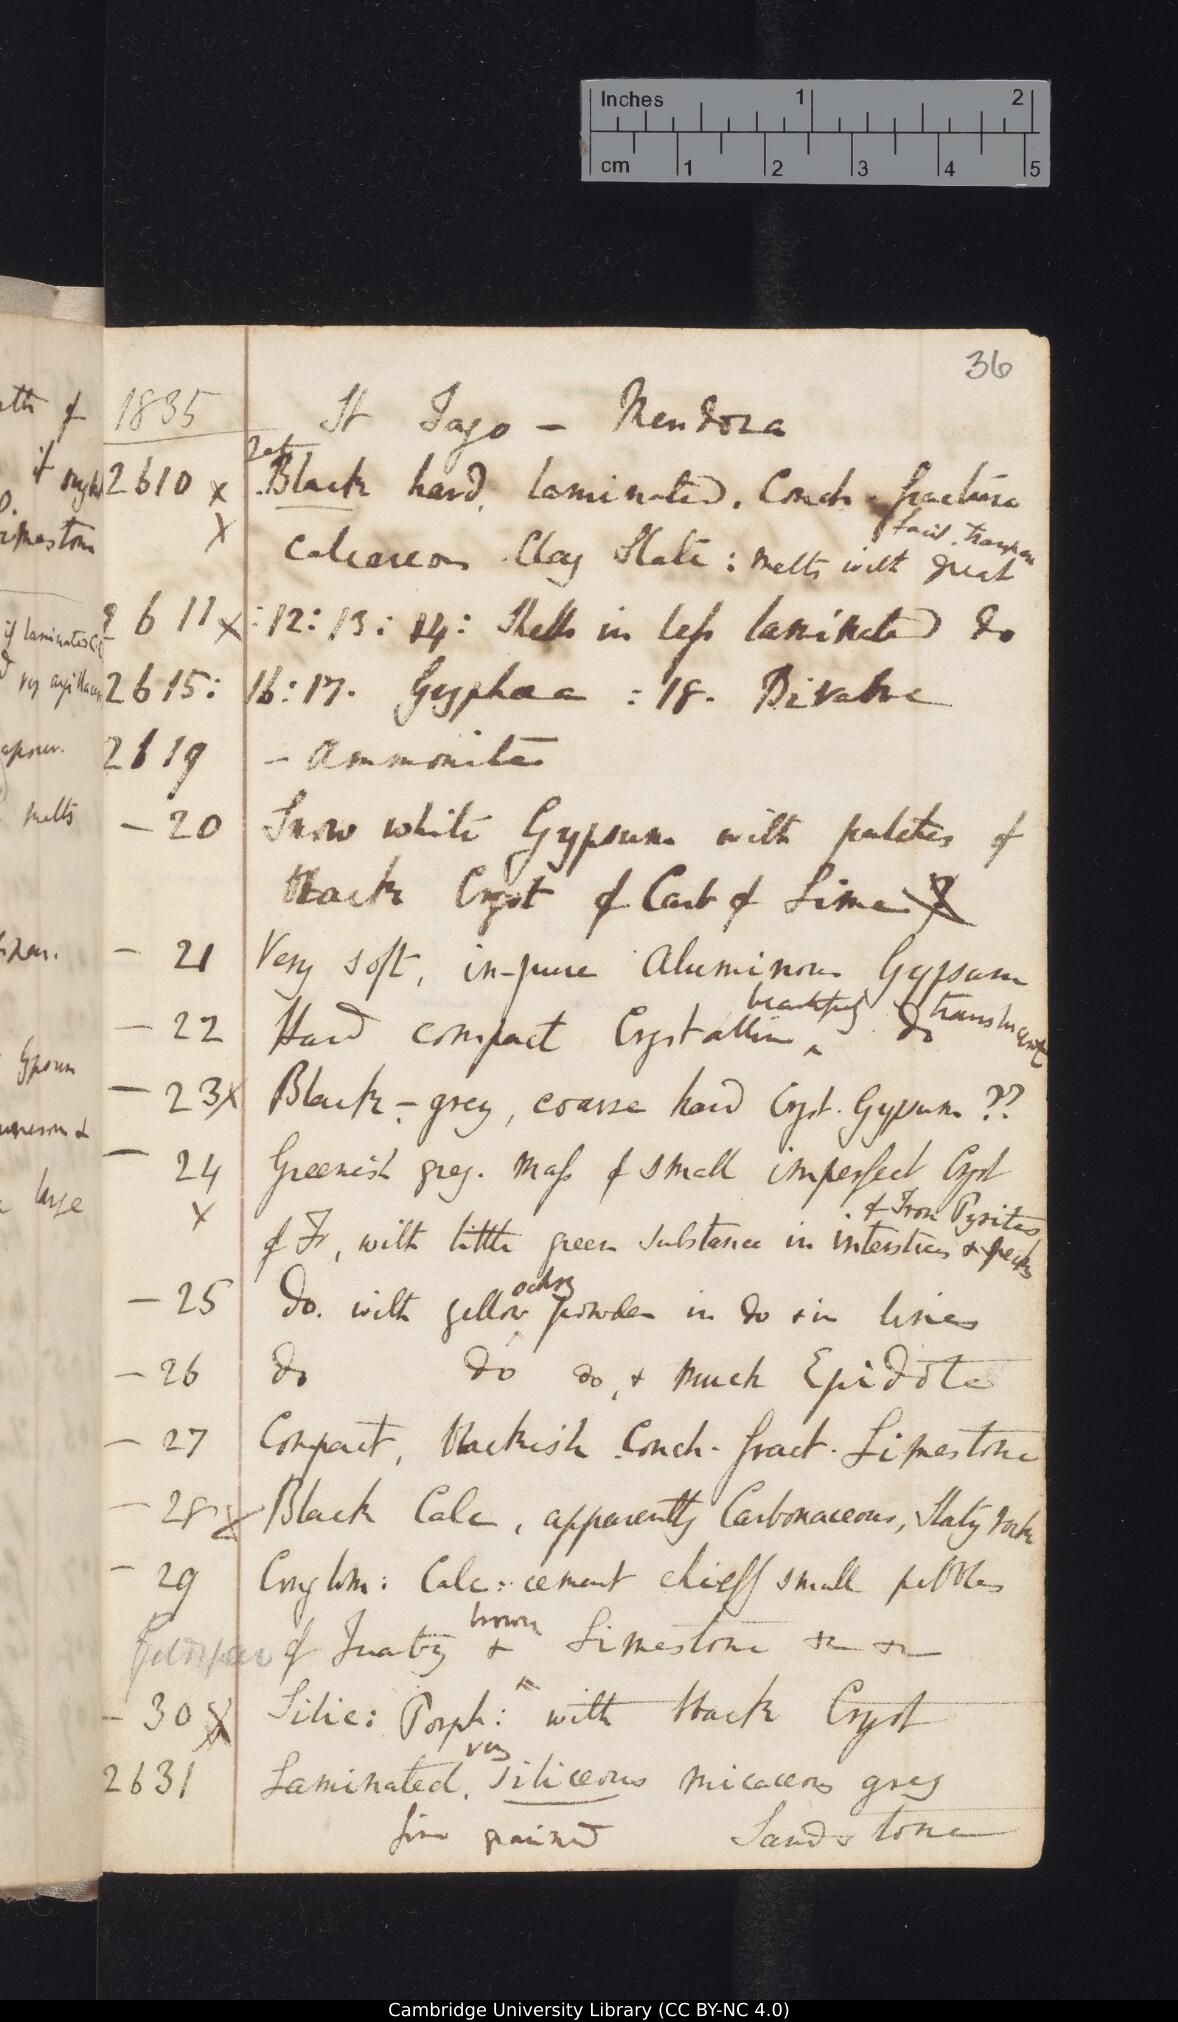 Inches 1 2
cm 1 2 3 4 5
36
1835 St Jago — Mendoza
2610 x Black hard, laminated. Conch. fracture
x Calcareous Clay Slate: melts with great
facil.
2611 x :12: 13: 14: Shells in less laminated do
2615: 16: 17. Gryphæa : 18. Bivalve
2619 — Ammonites
— 20 Snow white Gypsum with patches of
black Cryst of Carb of Lime
— 21 Very soft, in-pure Aluminous Gypsum
— 22 Hard compact Crystallin ^ beautifully do translucent
— 23 x Black - grey, coarse hard Cryst. Gypsum ??
— 24 Greenish grey. mass of small imperfect Cryst
x of F, with little green substance in interstices & specks
of Iron Pyrites
— 25 do. with yellow ochry powder in do & in lines
— 26 do do do, & much Epidote
— 27 Compact, blackish Conch. fract. Limestone
— 28 x Black Calc, apparently Carbonaceous, Slaty rock
— 29 Conglom: Calc: cement chiefly small pebbles
Feldspar of Quartz & brown Limestone &c &c
— 30 x Silic: Porph: with black Cryst
2631 Laminated, very siliceous micaceous grey
fine grained Sandstone
ath of
if
Limestone
if laminated
melts
Gypsum
large
Cambridge University Library (CC BY-NC 4.0)